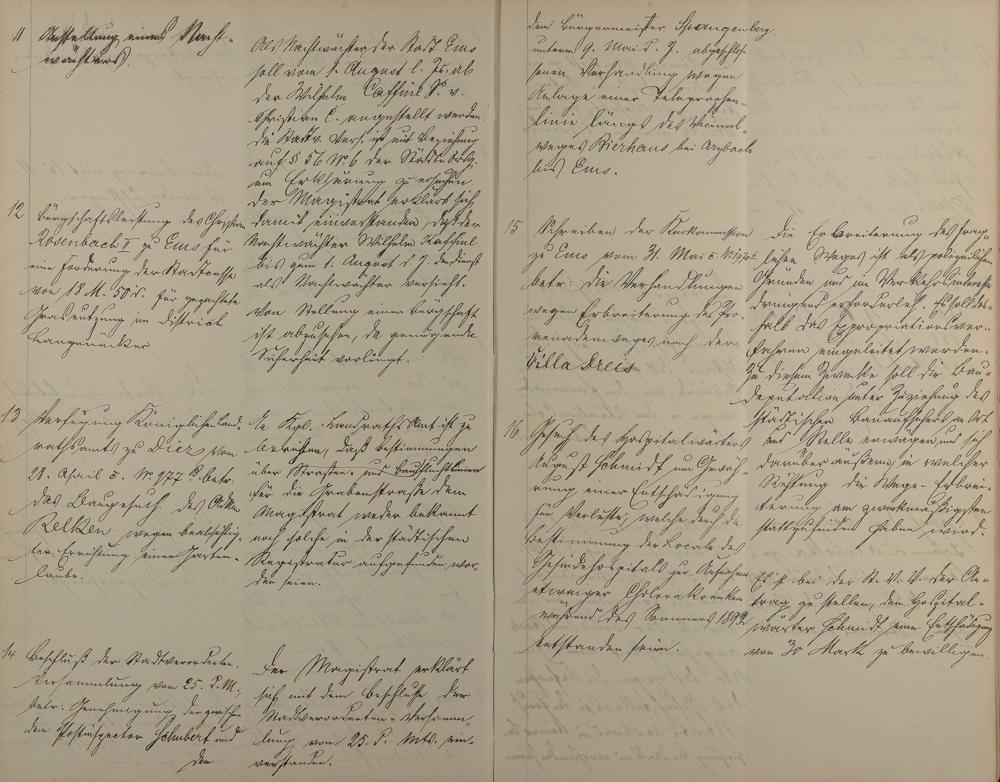 11 Anstellung eines Nacht-
wächters.
Als Nachtwächter der Stadt Ems
soll vom 1. August l. Js. ab
der Wilhelm Caffine v.
Christian C. angestellt werden.
die Stadtv. Vers. ist mit Beziehung
auf § 56 No 6 der Städte Ordg.
um Erklärung zu ersuchen
Der Magistrat erklärt sich
damit einverstanden, daß der
Nachtwächter Wilhelm
bis zum 1. August d. J. den Dienst
als Nachtwächter versieht.
Von Stellung einer Bürgschaft
ist abzusehen, da genügende
Sicherheit vorliegt.
12 Bürgschaftsleistung des Christian
Rosenbach I zu Ems für
eine Forderung der Stadtcasse
von 18 M. 50 d. für gepachtete
Grasnutzung im District
Langenacker
13 Verfügung Königlichen Land-
rathsamts zu Diez vom
28. April c. No 977 betr.
das Baugesuch des
Relken wegen beabsichtig-
ter Errichtung einer Garten-
laube.
An Kgl. Landraths Amt ist zu
berichten, daß Bestimmungen
über Straßen- und Baufluchtlinien
für die Grabenstraße dem
Magistrat weder bekannt
noch solche in der städtischen
Registratur aufgefunden wor-
den seien.
14 Beschluß der Stadtverordneten-
Versammlung vom 25. d. M.,
betr: Genehmigung der zwischen
dem Postinspector Schubert und
dem
Der Magistrat erklärt
sich mit dem Beschlusse der
Stadtverordneten-Versamm-
lung vom 25. d. Mts. ein-
verstanden.
dem Bürgermeister Spangenberg
unterm 9. Mai d. J. abgeschlos-
senen Verhandlung wegen
Anlage einer Telegraphen-
linie längs des Vicinal-
weges Bierhaus bei Arzbach
bis Ems.
15 Schreiben der Kurkommission
zu Ems vom 31. Mai c. No
betr: die Verhandlungen
wegen Erbreiterung des Pro-
menadenweges nach der
Villa Dreis
Die Erbreiterung des frag-
lichen Weges ist aus polizeilichen
Gründen und im Verkehrsinteresse
dringend erforderlich. Es soll des-
halb das Expropriationsver-
fahren eingeleitet werden.
Zu diesem Zwecke soll die Bau-
deputation unter Zuziehung des
städtischen Bauaufsehers an Ort
und Stelle erwägen und sich
darüber äußern, in welcher
Richtung die Wege-Erbrei-
terung am zweckmäßigsten
stattzufinden haben wird.
16 Gesuch des Hospitalwärters
August Schmidt um Gewäh-
rung einer Entschädigung
für Verluste, welche durch die
Bestimmung der Locale des
Gesindehospitals zur Aufnahme
etwaiger Cholerakranken
während des Sommers 1892
entstanden seien.
Es ist bei der St. V. V. der An-
trag zu stellen, dem Hospital-
wärter Schmidt eine Entschädigung
von 30 Mark zu bewilligen.